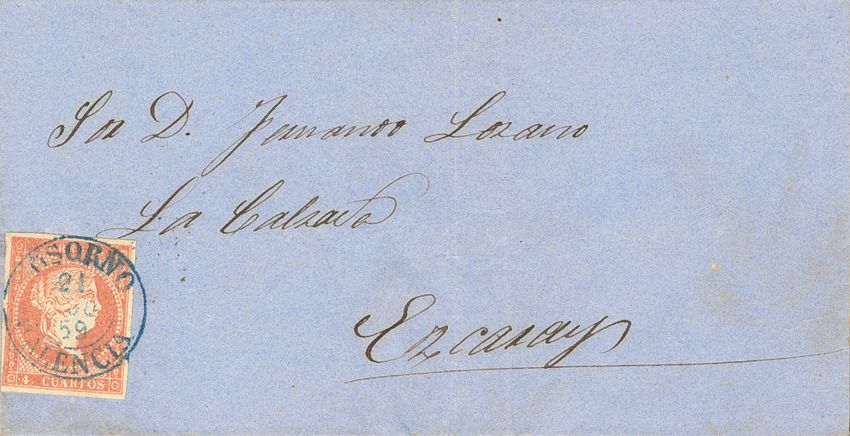 Sor D. Fernando Lozano
La Calzada
Ezcaray
OSORNO
21
59
PALENCIA
4 CUARTOS